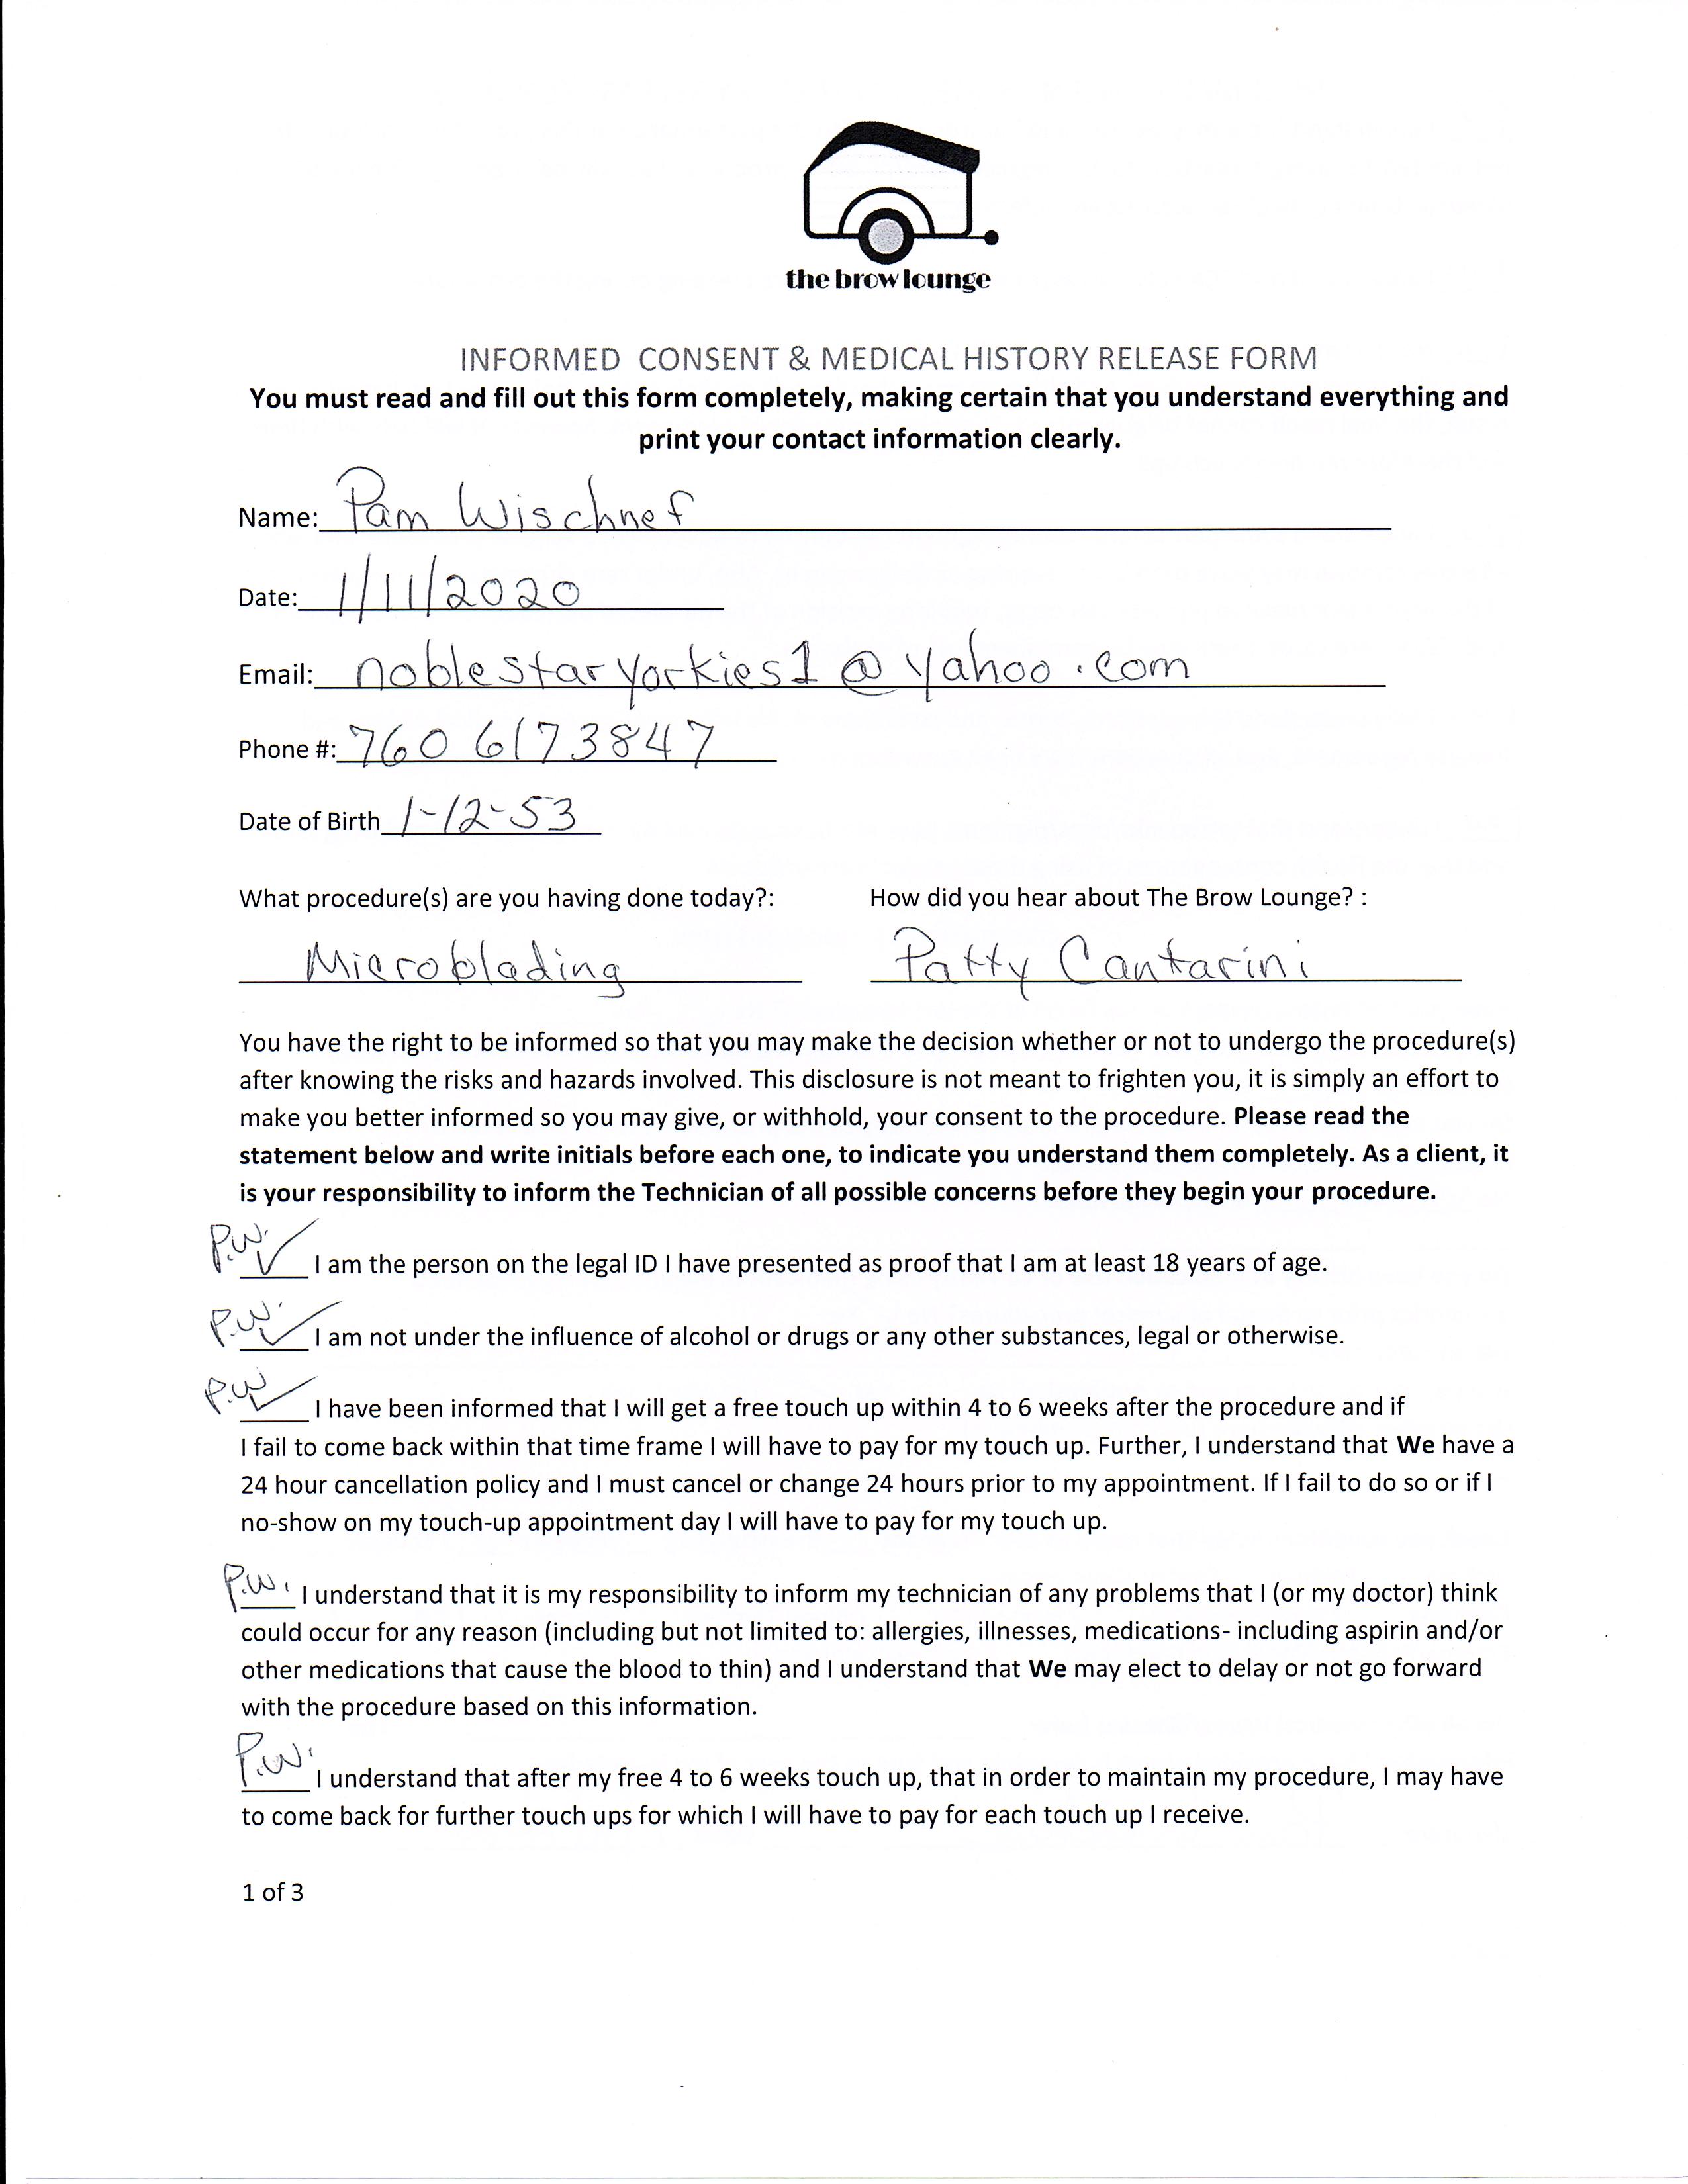 the brow lounge
INFORMED CONSENT & MEDICAL HISTORY RELEASE FORM
You must read and fill out this form completely, making certain that you understand everything and
print your contact information clearly.
Name: Pam Wischnef
Date: 1/11/2020
Email: noblestaryorkies1@yahoo.com
Phone #: 760 6173847
Date of Birth 1-12-53
What procedure(s) are you having done today?: How did you hear about The Brow Lounge? :
Microblading Patty Cantarini
You have the right to be informed so that you may make the decision whether or not to undergo the procedure(s)
after knowing the risks and hazards involved. This disclosure is not meant to frighten you, it is simply an effort to
make you better informed so you may give, or withhold, your consent to the procedure. Please read the
statement below and write initials before each one, to indicate you understand them completely. As a client, it
is your responsibility to inform the Technician of all possible concerns before they begin your procedure.
P.W. ✓ I am the person on the legal ID I have presented as proof that I am at least 18 years of age.
P.W. ✓ I am not under the influence of alcohol or drugs or any other substances, legal or otherwise.
P.W ✓ I have been informed that I will get a free touch up within 4 to 6 weeks after the procedure and if
I fail to come back within that time frame I will have to pay for my touch up. Further, I understand that We have a
24 hour cancellation policy and I must cancel or change 24 hours prior to my appointment. If I fail to do so or if I
no-show on my touch-up appointment day I will have to pay for my touch up.
P.W. I understand that it is my responsibility to inform my technician of any problems that I (or my doctor) think
could occur for any reason (including but not limited to: allergies, illnesses, medications- including aspirin and/or
other medications that cause the blood to thin) and I understand that We may elect to delay or not go forward
with the procedure based on this information.
P.W. I understand that after my free 4 to 6 weeks touch up, that in order to maintain my procedure, I may have
to come back for further touch ups for which I will have to pay for each touch up I receive.
1 of 3